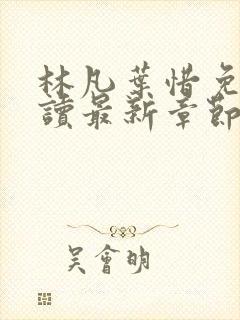 林凡葉惜免
讀最新章節
吳會明